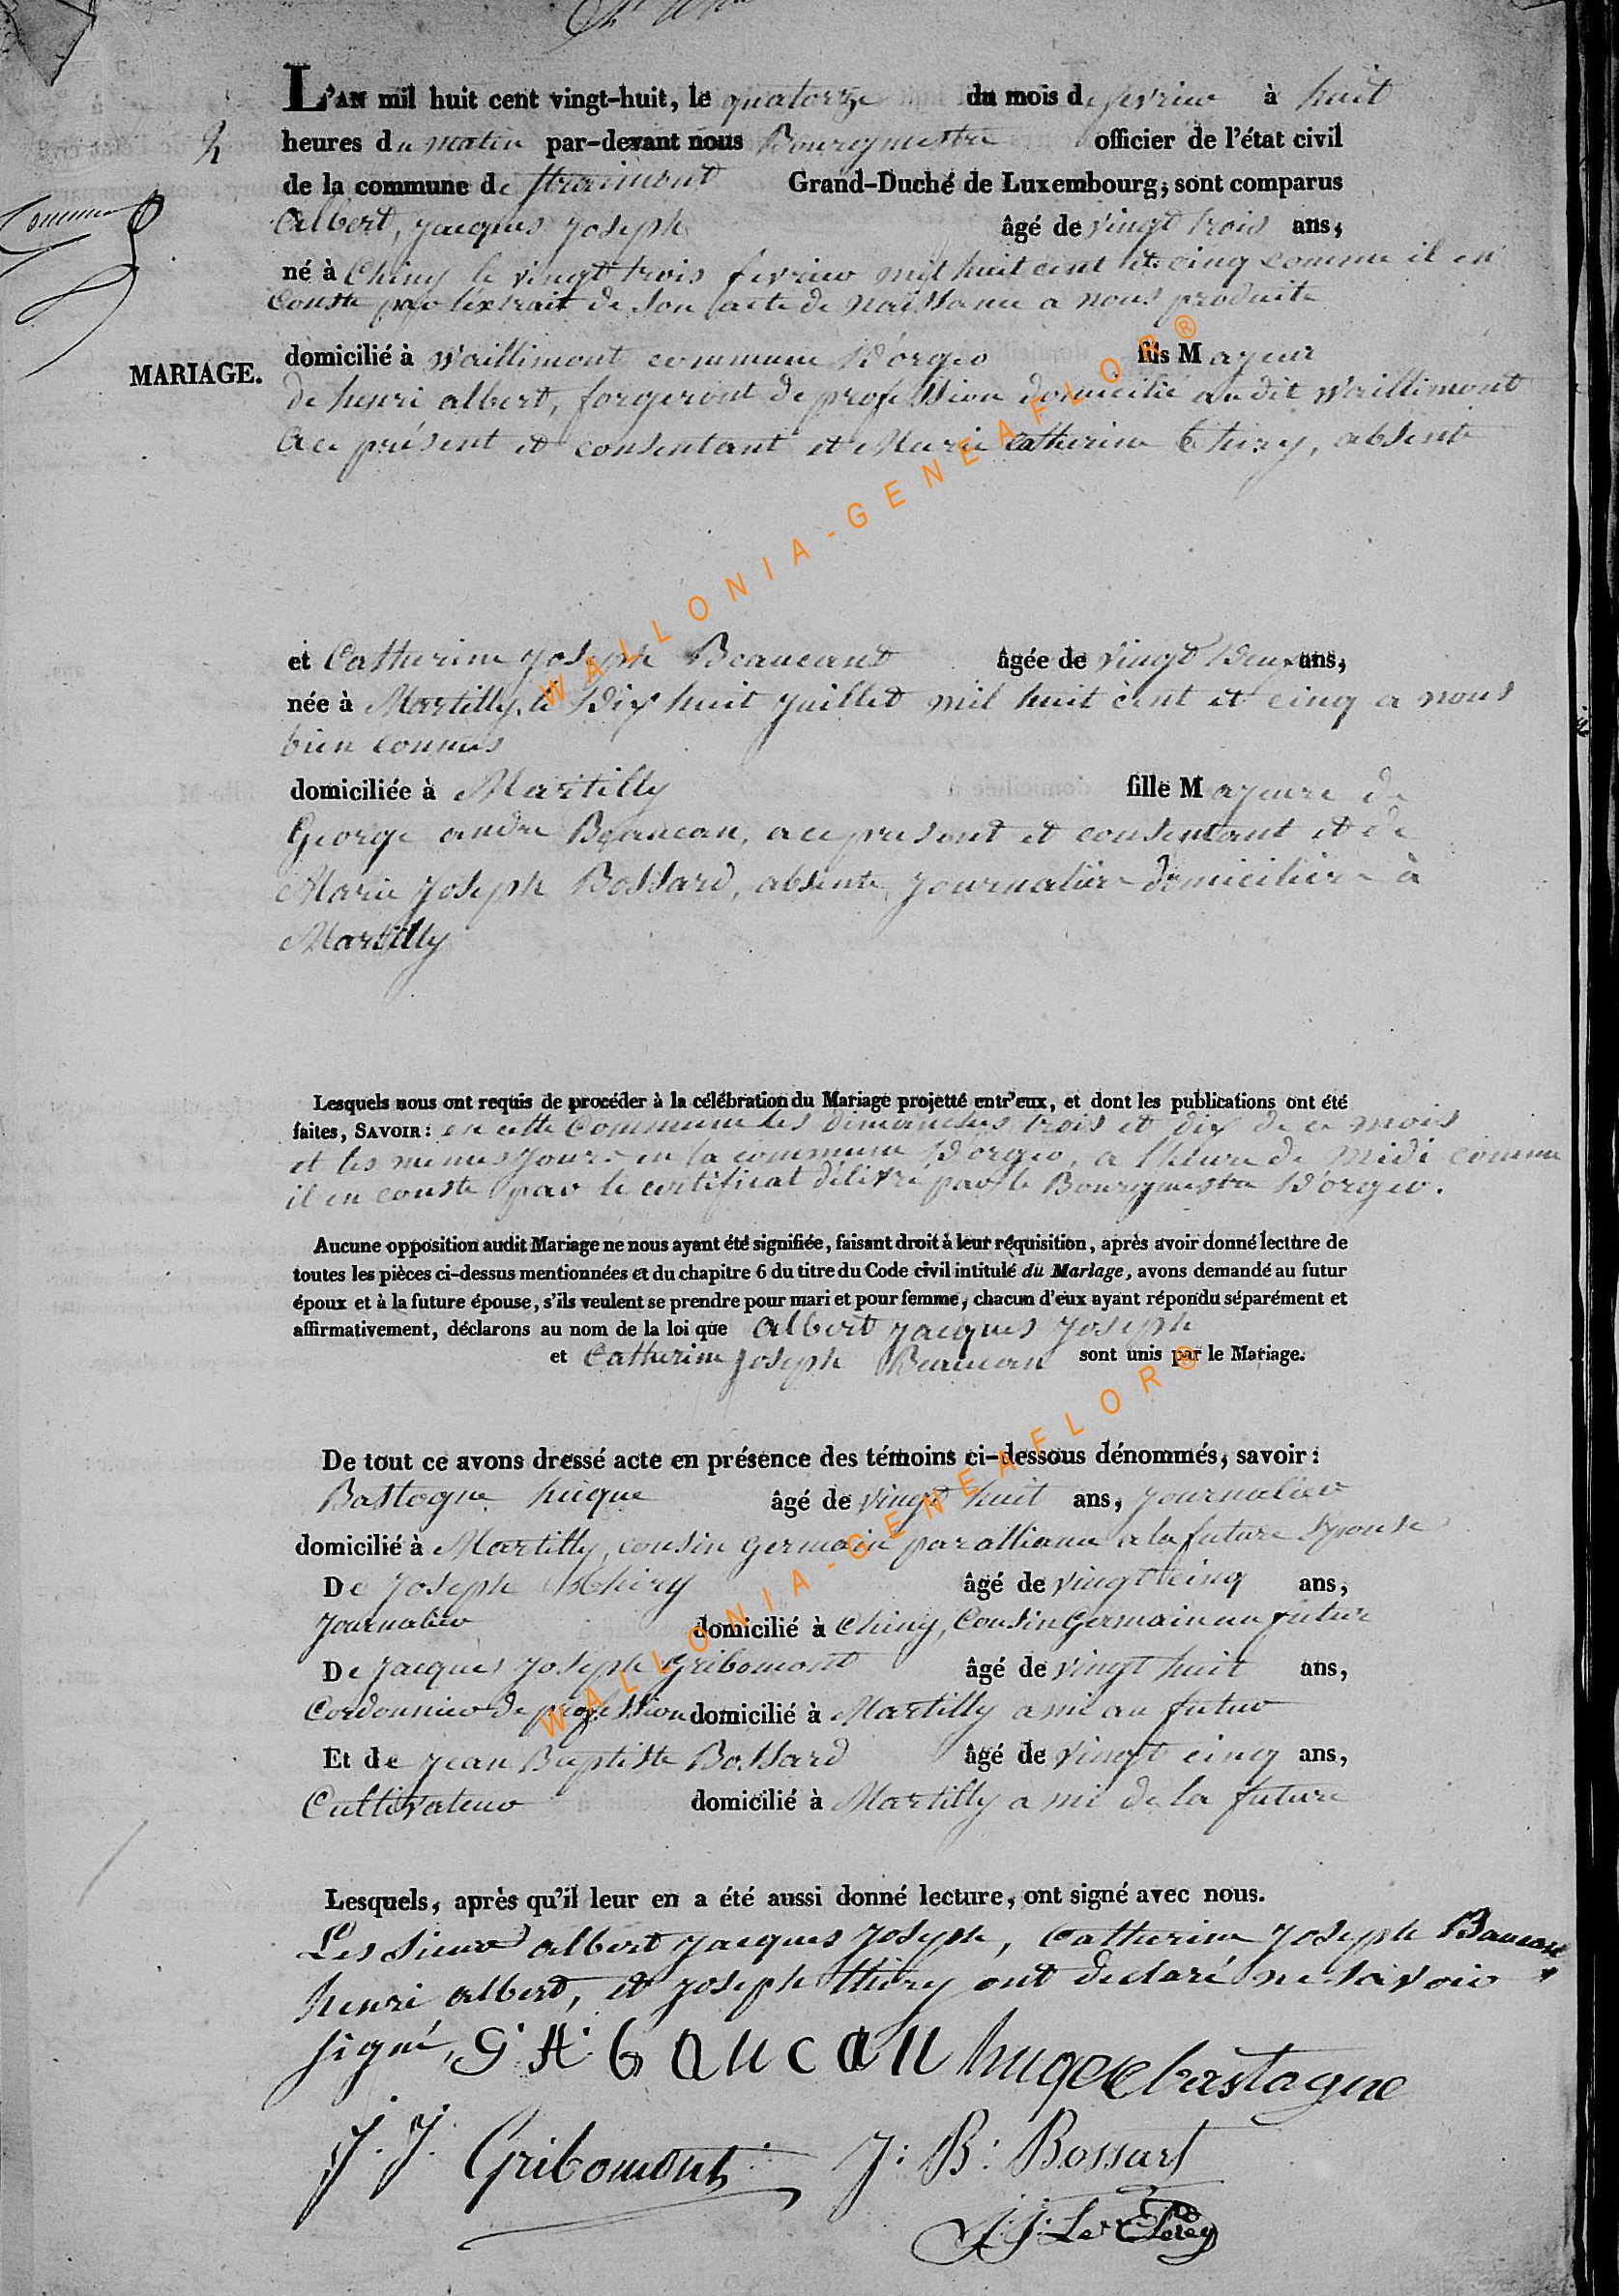 L'AN mil huit cent vingt-huit, le quatorze du mois de fevrier à huit
2
heures du matin par-devant nous Bourgmestre officier de l'état civil
de la commune de straimont Grand-Duché de Luxembourg, sont comparus
Albert, jacques joseph âgé de vingt trois ans,
né à Chiny le vingt trois fevrier mil huit cent et cinq comme il en
conste par l'extrait de son acte de naissance a nous produite
MARIAGE.
domicilié à waillimont commune d'orgeo fils Majeur
de henri albert, forgeront de profession domicilié au dit waillimont
a ce présent et consentant et Marie Catherine Thiry, absente
et Catherine joseph Beaucant âgée de vingt deux ans,
née à Martilly, le dix huit juillet mil huit cent et cinq a nous
bien connus
domiciliée à Martilly fille Majeure de
George andre Beaucan, a ce present et consentant et de
Marie joseph Bossard, absente, journaliers domiciliers à
Martilly
Lesquels nous ont requis de procéder à la célébration du Mariage projetté entr'eux, et dont les publications ont été
faites, SAVOIR: en cette Commune les dimanches trois et dix de ce mois
et les memes jours en la commune d'orgeo, a l'heure de midi comme
il en conste par le certificat délivré par le Bourgmestre d'orgeo.
Aucune opposition audit Mariage ne nous ayant été signifiée, faisant droit à leur réquisition, après avoir donné lecture de
toutes les pièces ci-dessus mentionnées et du chapitre 6 du titre du Code civil intitulé du Mariage, avons demandé au futur
époux et à la future épouse, s'ils veulent se prendre pour mari et pour femme, chacun d'eux ayant répondu séparément et
affirmativement, déclarons au nom de la loi que albert jacques joseph
et Catherine joseph Beaucan sont unis par le Mariage.
De tout ce avons dressé acte en présence des témoins ci-dessous dénommés, savoir:
Bastogne huque âgé de vingt huit ans, journalier
domicilié à Martilly, cousin germain par alliance a la future epouse
De joseph thiry âgé de vingt cinq ans,
journalier domicilié à Chiny, Cousin Germain au futur
De jacques joseph Gribomont âgé de vingt huit ans,
Cordonnier de profession domicilié à Martilly ami au futur
Et de jean Baptiste Bossard âgé de vingt cinq ans,
Cultivateur domicilié à Martilly ami de la future
Lesquels, après qu'il leur en a été aussi donné lecture, ont signé avec nous.
Les sieurs albert jacques joseph, Catherine joseph Baucant
henri albert, et joseph thiry ont declaré ne savoir
signé, G A baucan huque bastogne
J. J. Gribomont J: B: Bossart
WALLONIA-GENEAFLOR®
WALLONIA-GENEAFLOR®